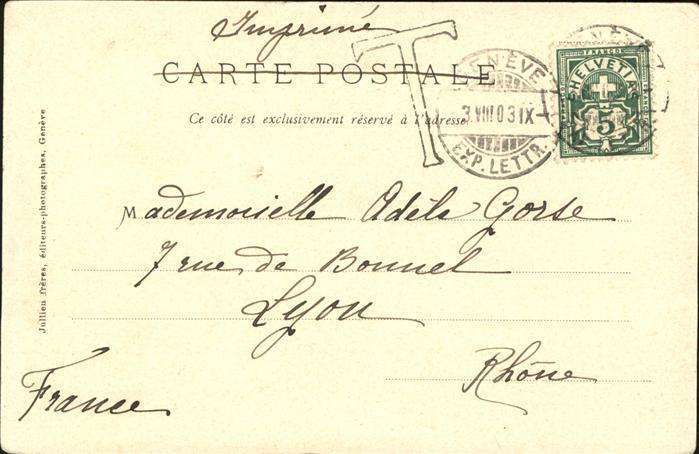 Imprimé
CARTE POSTALE
Ce côté est exclusivement réservé à l'adresse
T
GENÈVE
3.VIII 03 IX
EXP. LETTR.
FRANCO
HELVETIA
5
Mademoiselle Adèle Gorse
7 rue de Bonnel
Lyon
Rhône
France
Jullien frères, éditeurs-photographes, Genève